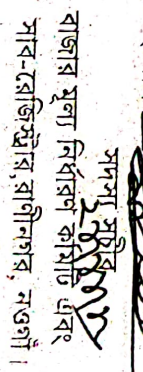 সদস্য সচিব
বাজার মূল্য নির্ধারণ কমিটি এবং
সাব-রেজিস্ট্রার, রাণীনগর, নওগাঁ।